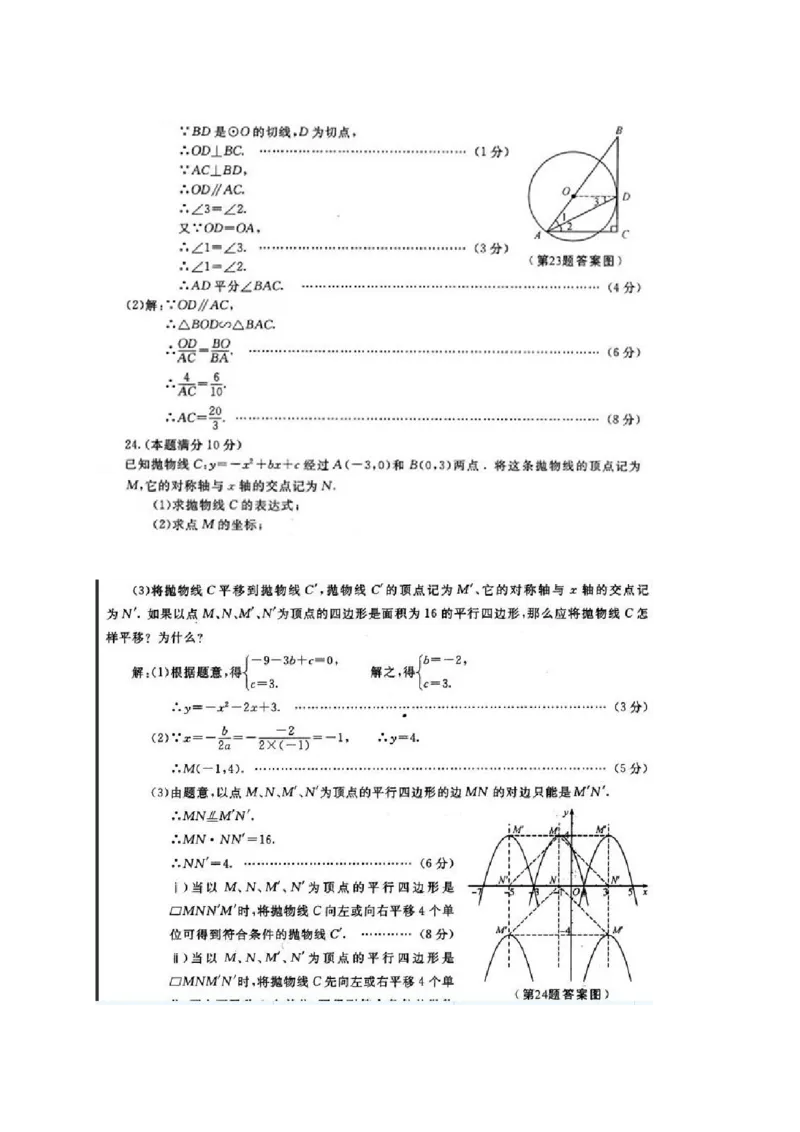 ∵BD是⊙O的切线,D为切点,
∴OD⊥BC. ………………………………………… (1分)
∵AC⊥BD,
∴OD∥AC.
∴∠3=∠2.
又∵OD=OA,
∴∠1=∠3. ………………………………………… (3分)
∴∠1=∠2.
∴AD平分∠BAC. ………………………………………………………… (4分)
B
O
D
3
1
2
A
C
(第23题答案图)
(2)解:∵OD∥AC,
∴△BOD∽△BAC.
∴OD/AC=BO/BA. ………………………………………………………… (6分)
∴4/AC=6/10.
∴AC=20/3. ………………………………………………………… (8分)
24.(本题满分10分)
已知抛物线C:y=-x²+bx+c经过A(-3,0)和B(0,3)两点.将这条抛物线的顶点记为
M,它的对称轴与x轴的交点记为N.
(1)求抛物线C的表达式;
(2)求点M的坐标;
(3)将抛物线C平移到抛物线C′,抛物线C′的顶点记为M′、它的对称轴与x轴的交点记
为N′.如果以点M、N、M′、N′为顶点的四边形是面积为16的平行四边形,那么应将抛物线C怎
样平移?为什么?
解:(1)根据题意,得{-9-3b+c=0, c=3. 解之,得{b=-2, c=3.
∴y=-x²-2x+3. ………………………………………………………… (3分)
(2)∵x=-b/2a=--2/2×(-1)=-1, ∴y=4.
∴M(-1,4). ………………………………………………………… (5分)
(3)由题意,以点M、N、M′、N′为顶点的平行四边形的边MN的对边只能是M′N′.
∴MN⫽M′N′.
∴MN·NN′=16.
∴NN′=4. ………………………………… (6分)
ⅰ)当以M、N、M′、N′为顶点的平行四边形是
▱MNN′M′时,将抛物线C向左或向右平移4个单
位可得到符合条件的抛物线C′. ………… (8分)
ⅱ)当以M、N、M′、N′为顶点的平行四边形是
▱MNM′N′时,将抛物线C先向左或右平移4个单
y
M′ M 4 M′
N′ N N′
-7 -5 -3 -1 O 3 5 x
M′ -4 M′
(第24题答案图)